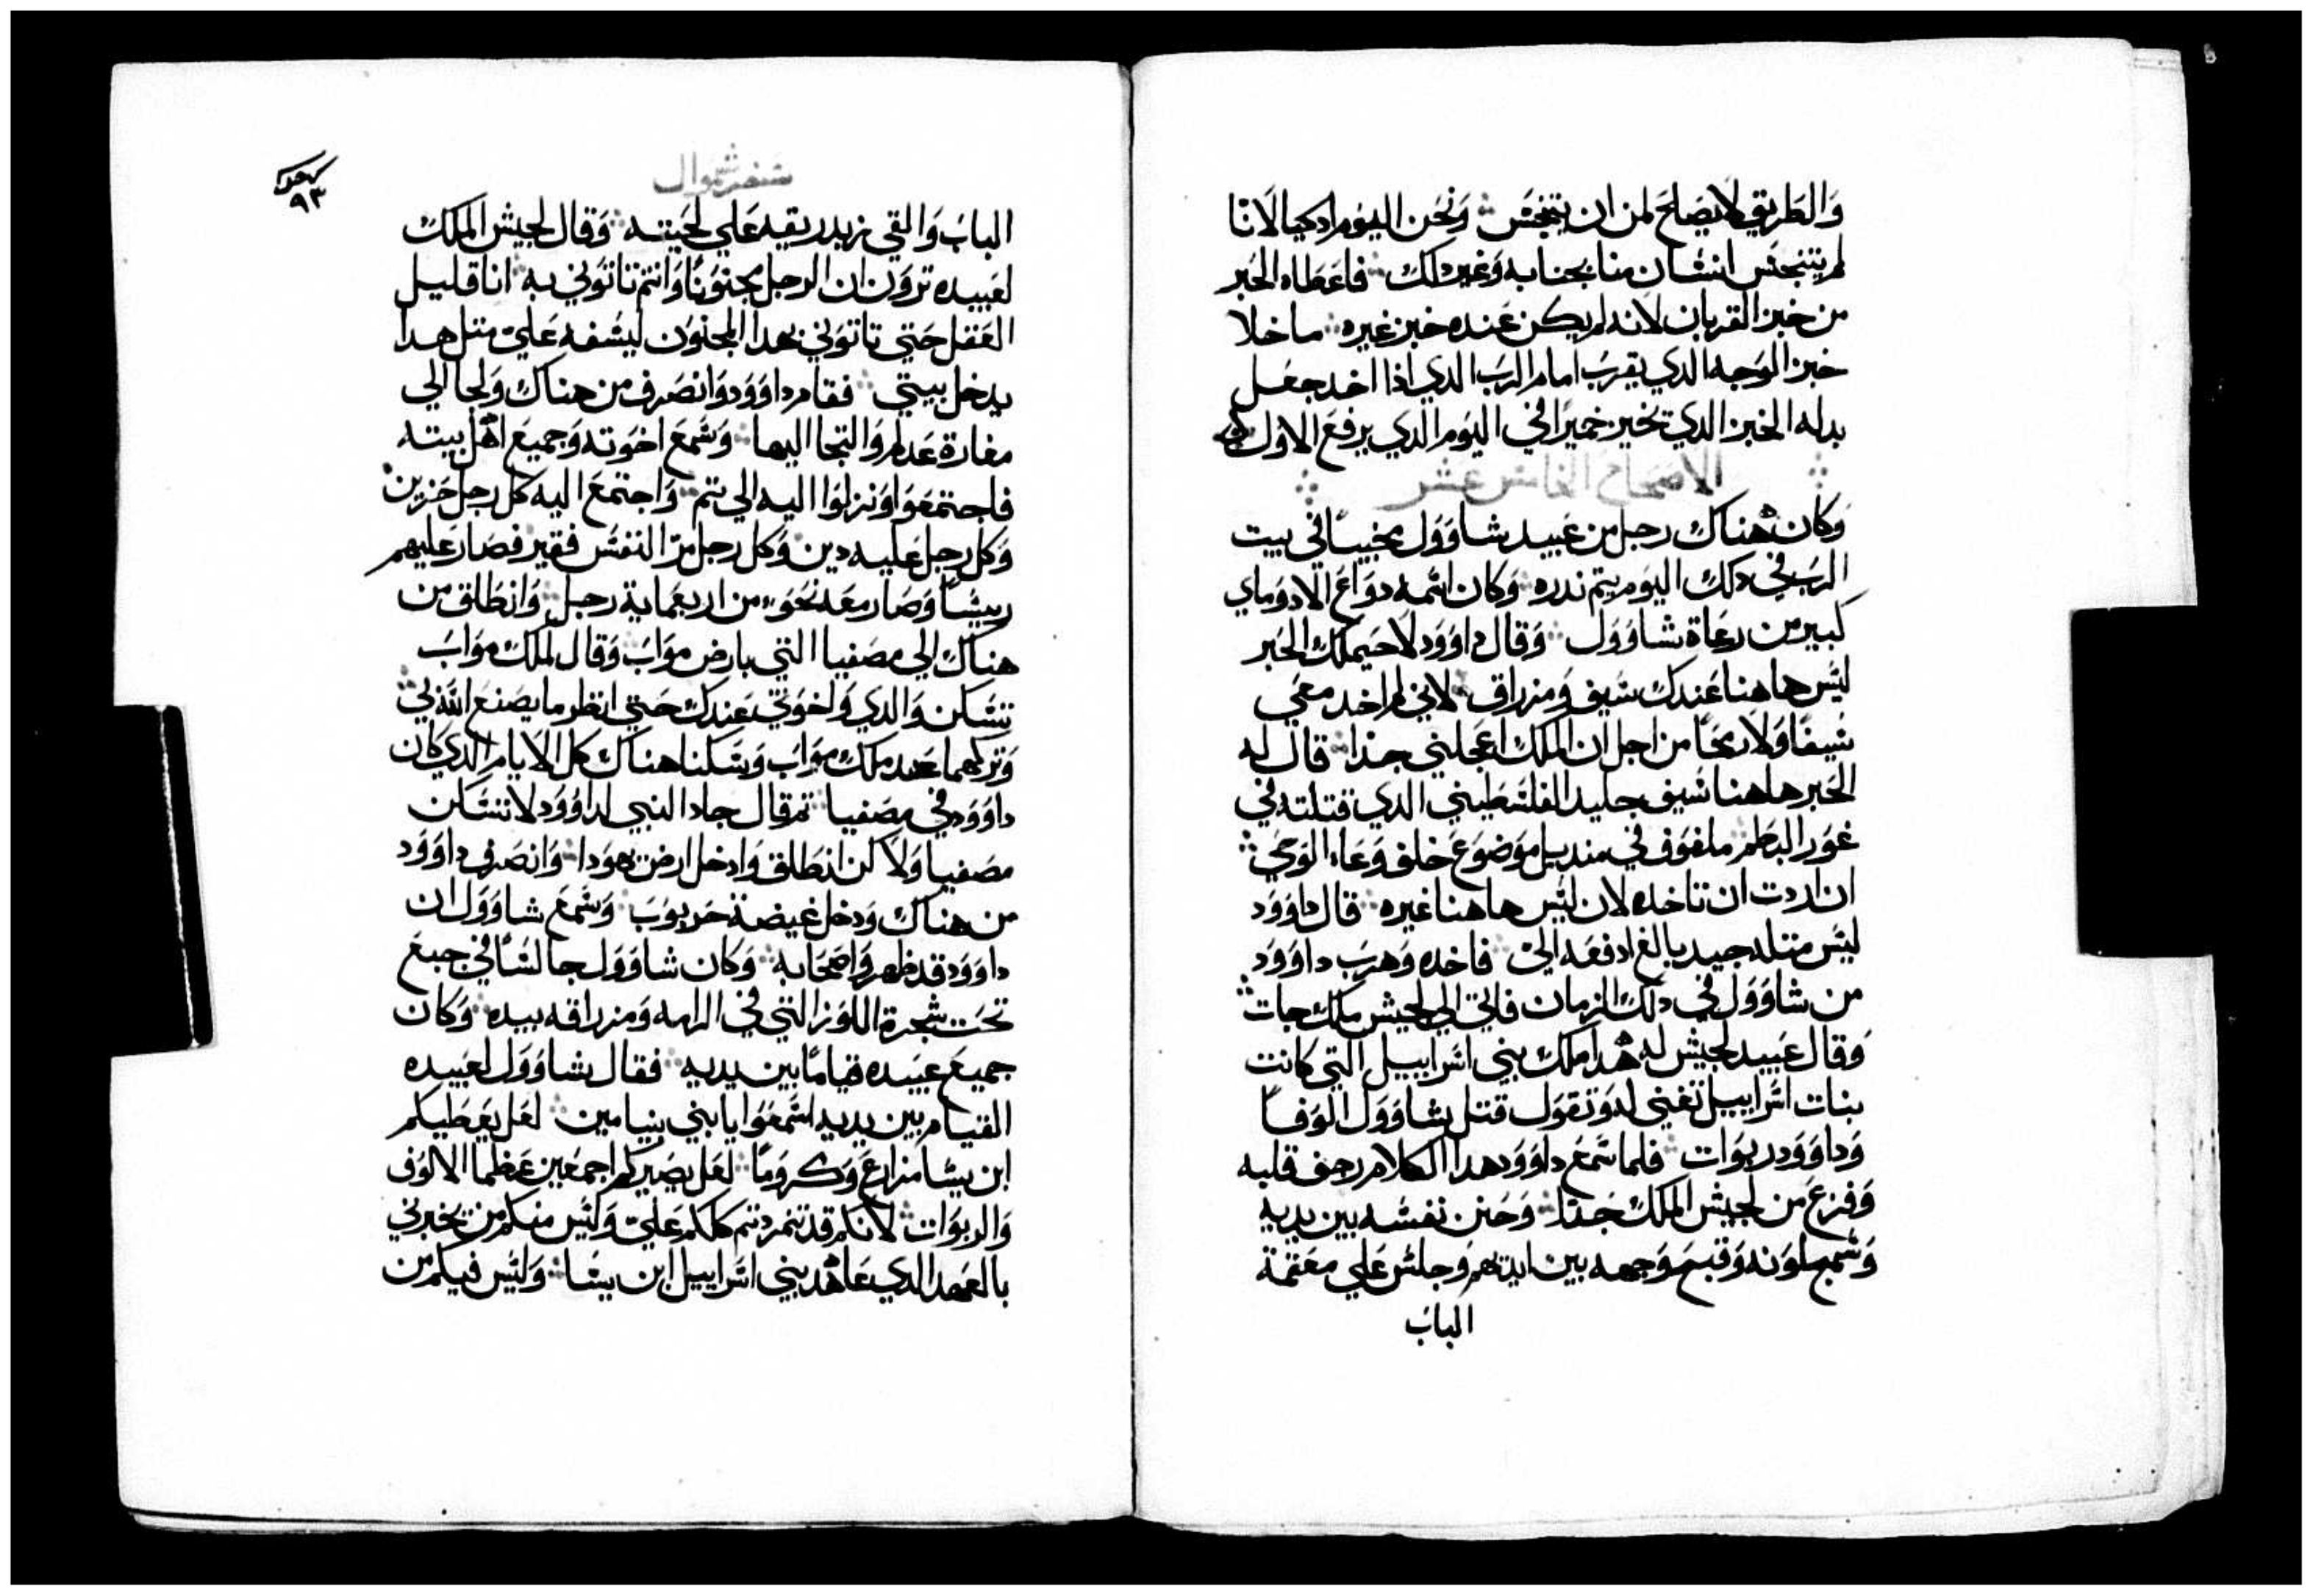 وَالطَريق لا يصَلح لمن ان يتنجسَ ۞ وَنحَن اليَوم ادكيا لانّا
لم يتنجسَ انسَان منا بجنابه وَغير دلك ۞ فاعَطاه الحَبر
من خبز القربان لانه لم يكن عَنده خبز غيره ۞ ما خلا
خبز الوَجه الدي يقربَ امام الربَ الدي اذا اخد جعَل
بدله الخبز الدي تخير خميرًا في اليَوم الدي يرفع الاول
الاصحاح الخامس عشر
وَكان هناك رجل من عَبيد شاوَوَل مخبيًا في بيت
الربَ في دلك اليَوم يتم ندره ۞ وَكان اسَمه دوَاعَ الادوَماي
كبير من رعَاة شاوَوَل ۞ وَقال داوَوَد لاحَيملك الحَبر
ليسَ هاهنا عَندك سَيف وَمزراق ۞ لاني لم اخد معَي
سَيفًا وَلا رمحَاً من اجل ان الملك اعَجلني جدا ۞ قال له
الحَبر هاهنا سَيف جليد الفلسَطيني الدي قتلته في
غوَر البطم ملفوَف في منديل موَضوَعَ خلف وَعَاء الوَحي ۞
ان اردت ان تاخده لان ليسَ هاهنا غيره ۞ قال داوَوَد
ليسَ متله جيد بالغ ادفعَه اليّ ۞ فاخده وَهربَ داوَوَد
من شاوَوَل في دلك الزمان فاتي الي لجيش ملك جات ۞
وَقال عَبيد لجيش له هدا ملك بني اسَراييل التي كانت
بنات اسَراييل تغني له وَتقوَل قتل شاوَوَل الوَفاً
وَداوَوَد ربوَات ۞ فلما سَمعَ داوَوَد هدا الكلام رجف قلبه
وَفزعَ من لجيش الملك جَدًا ۞ وَحَنن نفسَه بين يديه
وَسَمج لوَنه وَقبحَ وَجهه بين ايديهم وَجلسَ عَلي معَتمة
البابَ
۹۳
سَفر شموال
البابَ وَالقي زبد ريقه عَلي لحَيته ۞ وَقال لجيش الملك
لعَبيده تروَن ان الرجل مجنوَنًا وَانتم تاتوَني به ۞ انا قليل
العَقل حَتي تاتوَني بهدا المجنوَن ليسَفه عَليّ متل هدا
يدخل بيتي ۞ فقام داوَوَد وَانصَرف من هناك وَلجا الي
مغارة عَدلم وَالتجا اليها ۞ وَسَمعَ اخوَته وَجميعَ اهل بيته
فاجتمعَوَا وَنزلوَا اليه الي تم ۞ وَاجتمعَ اليه كل رجل حَزين
وَكل رجل عَليه دين ۞ وَكل رجل مرّ النفسَ فقير فصَار عَليهم
رييسَاً وَصَار معَه نحَوَ من اربعَماية رجل ۞ وَانطلق من
هناك الي مصَفيا التي بارض موَابَ وَقال لملك موَابَ
تسَكن وَالدي وَاخوَتي عَندك حَتي انظر ما يصَنعَ الله بي ۞
وَتركهما عَند ملك موَابَ وَسَكنا هناك كل الايام الدي كان
داوَوَد في مصَفيا ۞ تم قال جاد النبي لداوَوَد لا تسَكن
مصَفيا وَلاكن انطلق وَادخل ارض يهوَدا ۞ وَانصَرف داوَوَد
من هناك وَدخل غيضة حَربوَبَ ۞ وَسَمعَ شاوَوَل ان
داوَوَد قد ظهر وَاصحَابه ۞ وَكان شاوَوَل جالسًا في جبعَ
تحَت شجرة اللوَز التي في الرامه وَمزراقه بيده ۞ وَكان
جميعَ عَبيده قيامًا بين يديه ۞ فقال شاوَوَل لعَبيده
القيام بين يديه اسَمعَوَا يا بني بنيامين ۞ لعَل يعَطيكم
ابن يسَا مزارعَ وَكروَمًا ۞ لعَل يصَيركم اجمعَين عَظما الالوَف
وَالربوَات ۞ لانكم قد تمردتم كلكم عَليّ وَليسَ منكم من يخبرني
بالعَهد الدي عَاهد بني اسَراييل ابن يسَا ۞ وَليسَ فيكم من